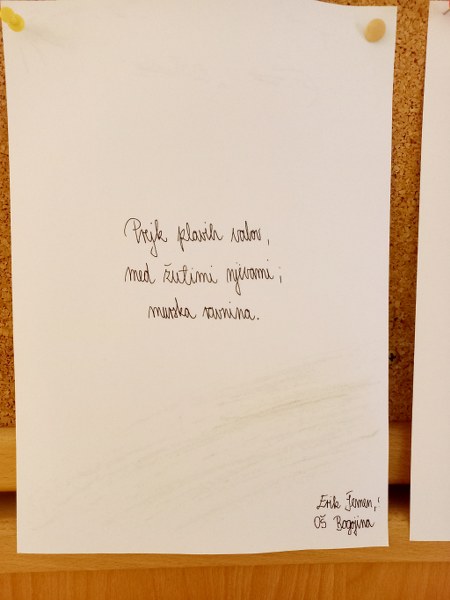 Prejk plavih valov,
med žutimi njivami;
murska ravnina.
Erik
OŠ Bogojina